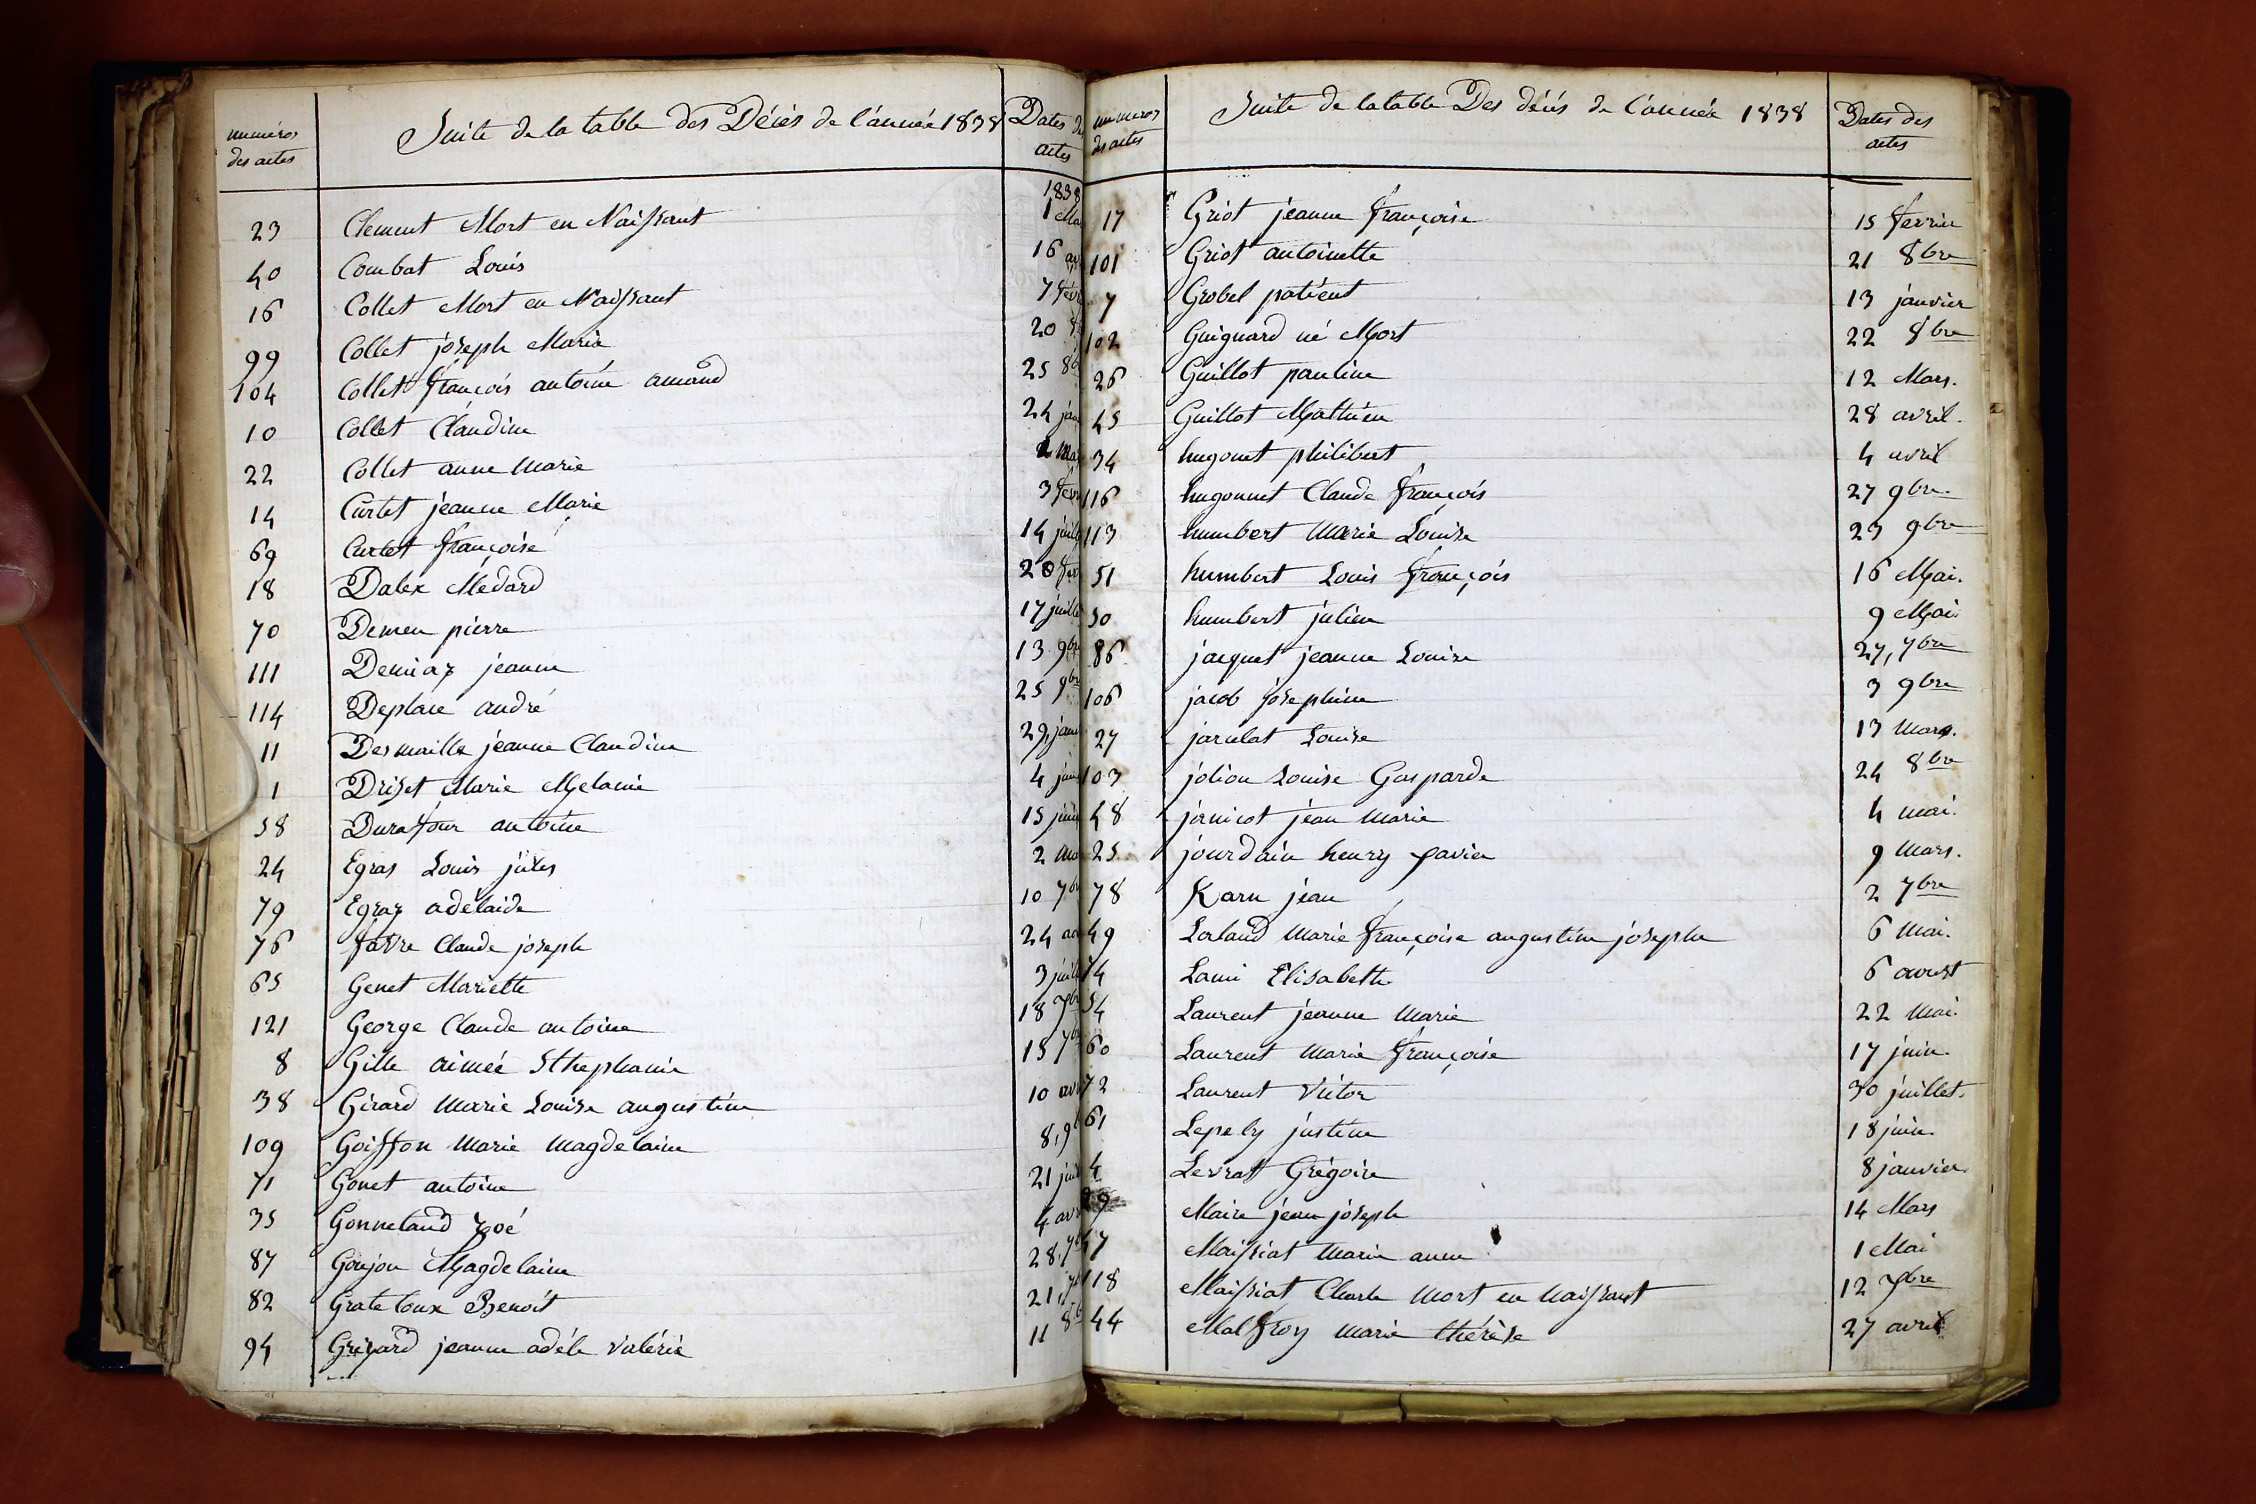 numéros des actes Suite de la table des Décès de l'année 1838 Dates de actes
1838
23 Clement Mort en Naissant 1 Ma
40 Combat Louis 16 av
16 Collet Mort en Naissant 7 fevr
99 Collet joseph Marie 20
104 Collet françois antoine amand 25 8b
10 Collet Claudine 24 jan
22 Collet anne Marie Mar
14 Curtet jeanne Marie 3 fevr
69 Curtet françoise 14 juill
18 Dalex Médard 20 fev
70 Demeu pierre 17 juille
111 Demiaz jeanne 13 9bre
114 Deplace andré 25 9bre
11 Desmaille jeanne Claudine 29, janv
1 Driset Marie Melanie 4 jan
58 Durafour antoine 15 juin
24 Egras Louis jules 2 Mar
79 Egraz adélaide 10 7br
76 favre Claude joseph 24 ao
65 Genet Mariette 3 juill
121 George Claude antoine 18
8 Gille aimée Sthephanie 15
38 Girard Marie Louise augustine 10 avr
109 Goiffon Marie Magdelaine 8, 9b
71 Gonet antoine 21 juil
35 Gonneland zoé 4 avr
87 Goujon Magdelaine 28, 7b
82 Grateloux Benoit 21, 7b
94 Grigard jeanne adéle valérie 11 8b
numeros des actes Suite de la table Des décés de l'année 1838 Dates des actes
17 Griot jeanne françoise 15 fevrier
101 Griot antoinette 21 8bre
7 Grobel patient 13 janvier
102 Guignard né Mort 22 8bre
26 Guillot pauline 12 Mars.
45 Guillot Mathieu 28 avril.
34 hugonet philibert 4 avril
116 hugonnet Claude françois 27 9bre.
113 humbert Marie Louise 23 9bre
51 humbert Louis françois 16 Mai.
50 humbert julien 9 Mai.
86 jacquet jeanne Louise 27, 7bre
106 jacob josephine 3 9bre
27 jarulat Louise 13 Mars.
103 jolion Louise Gasparde 24 8bre
48 jornicot jean Marie 4 mai.
25 jourdain henry xavier 9 Mars.
78 Karn jean 2 7bre
49 Lorland Marie françoise augustine josephe 6 Mai.
74 Lami Elisabeth 6 aoust
54 Laurent jeanne Marie 22 Mai.
60 Laurent Marie françoise 17 juin.
72 Laurent Victor 30 juillet.
61 Lepely justine 18 juin.
4 Levrat Grégoire 8 janvier.
29 Maire jean joseph 14 Mars
47 Maissiat Marie anne 1 Mai
118 Maissiat Charle Mort en naissant 12 Xbre
44 Malfroy Marie thérèse 27 avril